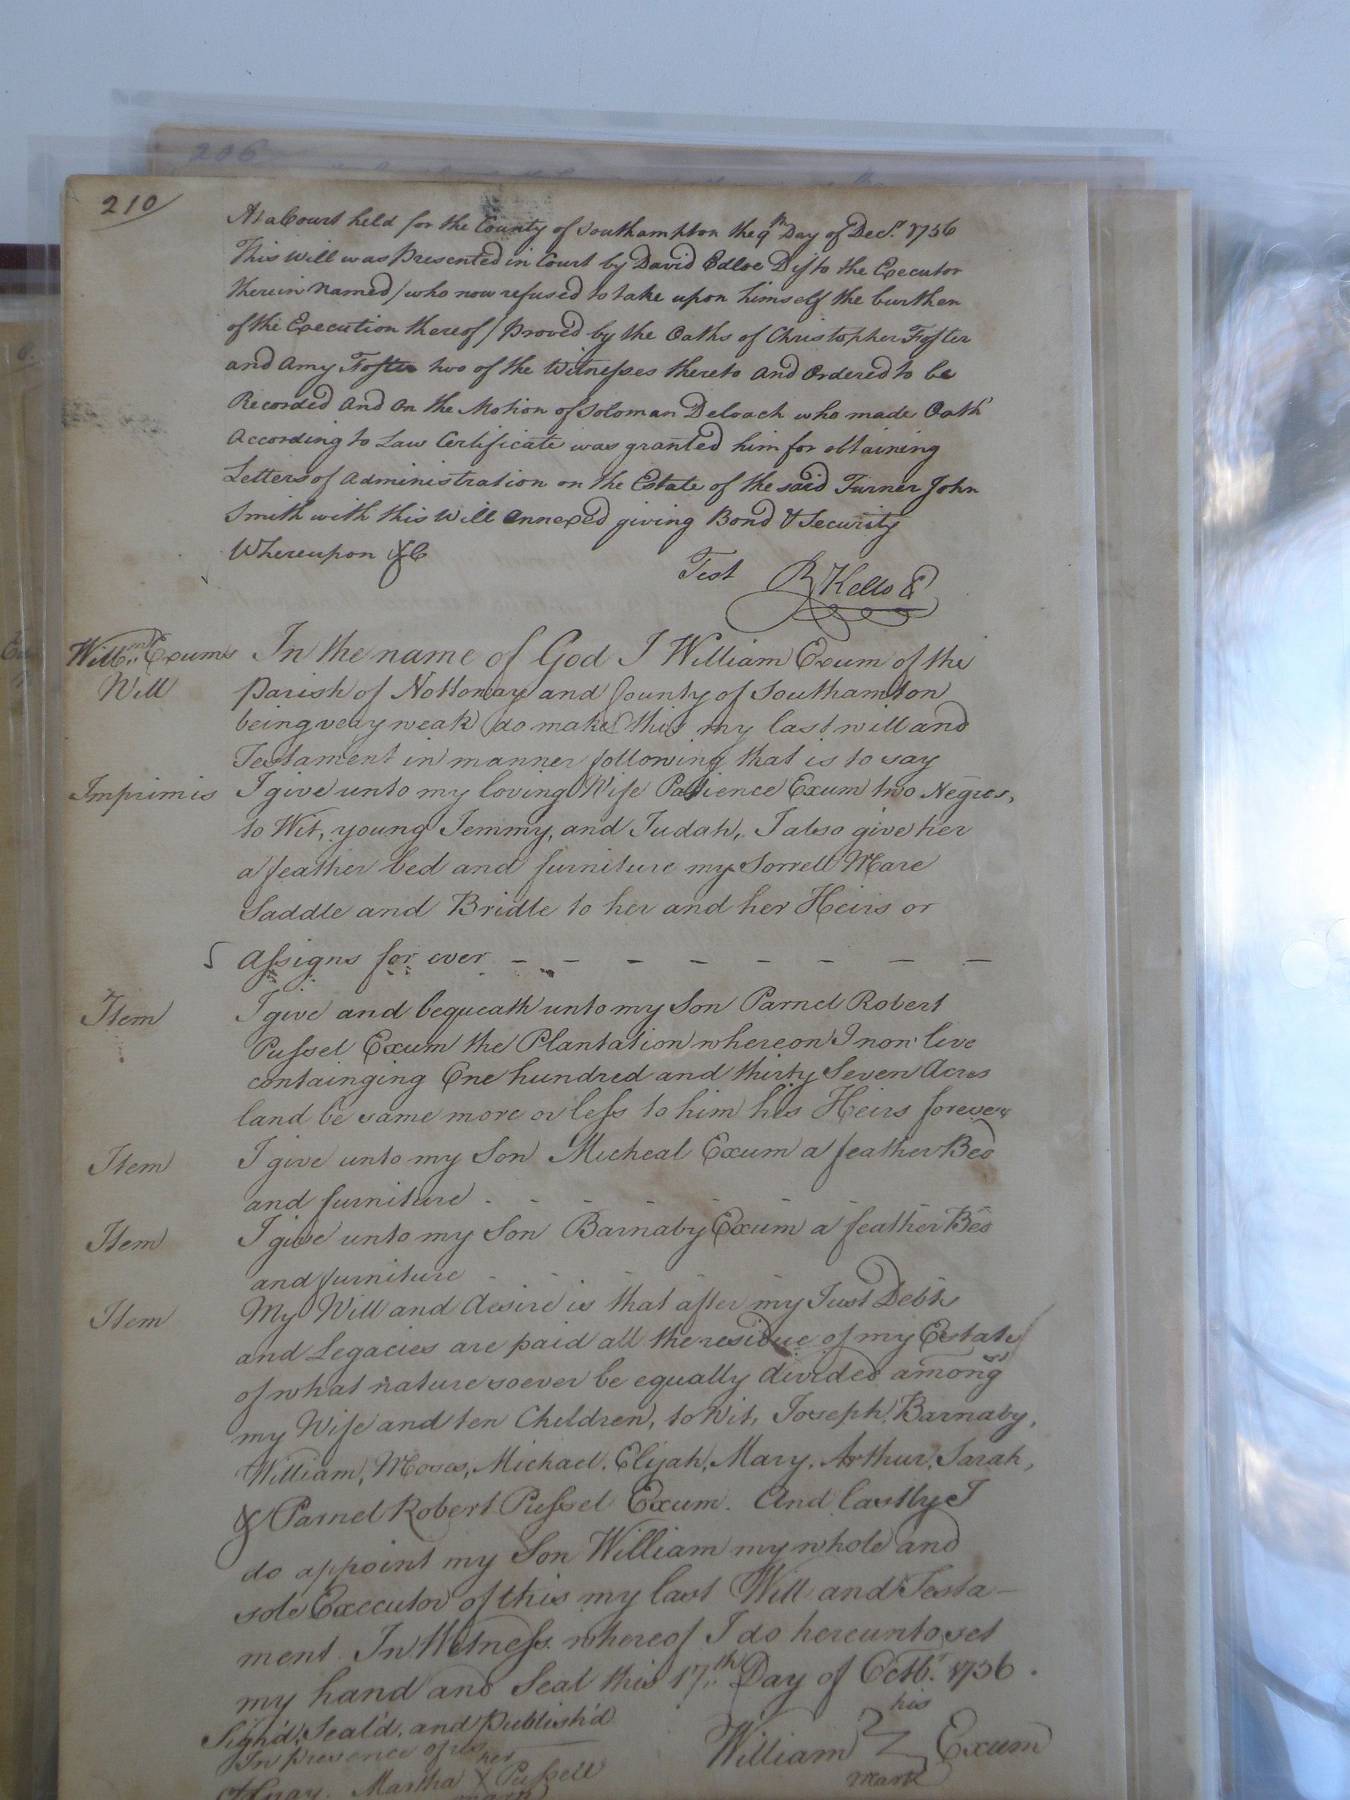 206
210
At a Court held for the County of Southampton the 9th Day of Decr. 1756
This Will was Presented in Court by David Edloe Disto the Executor
therein Named / who now refused to take upon himself the burthen
of the Execution thereof / proved by the Oaths of Christopher Foster
and Amy Foster two of the Witnesses thereto and Ordered to be
Recorded And on the Motion of Soloman Deloach who made Oath
According to Law Certificate was granted him for obtaining
Letters of Administration on the Estate of the said Turner John
Smith with this Will Annexed giving Bond & Security
Whereupon &C
Test R Kello
Willm. Exums Will
In the name of God I William Exum of the
Parish of Nottoway and County of Southamton
being veay weak do make this my last will and
Testament in manner following that is to say
Imprimis I give unto my loving Wife Patience Exum two Negros,
to Wit, young Jemmy, and Judah, I also give her
a feather bed and furniture my Sorrell Mare
Saddle and Bridle to her and her Heirs or
Assigns for ever - - - - - - - -
Item I give and bequeath unto my Son Parnel Robert
Pussel Exum the Plantation whereon I now live
containging One hundred and thirty Seven Acres
land be same more or less to him his Heirs forever
Item I give unto my Son Micheal Exum a feather Bed
and furniture - - - - - - -
Item I give unto my Son Barnaby Exum a feather Bed
and furniture - - - -
Item My Will and desire is that after my Just Debts
and Legacies are paid all the residue of my Estate
of what nature soever be equally divided among
my Wife and ten Children, to Wit, Joseph, Barnaby,
William, Moses, Michael, Elijah, Mary, Arthur, Sarah,
& Parnel Robert Pussel Exum. And lastly I
do appoint my Son William my whole and
sole Executor of this my last Will and Testa-
ment In Witness whereof I do hereunto set
my hand and Seal this 17th Day of Octbr. 1756.
Sign'd, Seal'd, and Publish'd
In presence of us
his
William Exum
mark
her
Martha X Pussell
mark